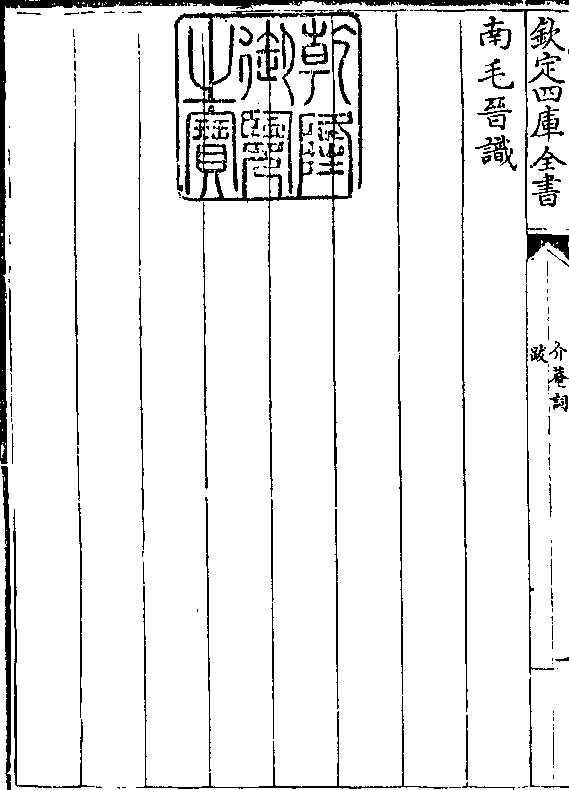 欽定四庫全書
介菴詞
跋
南毛晉識
乾隆
御覽
之寶